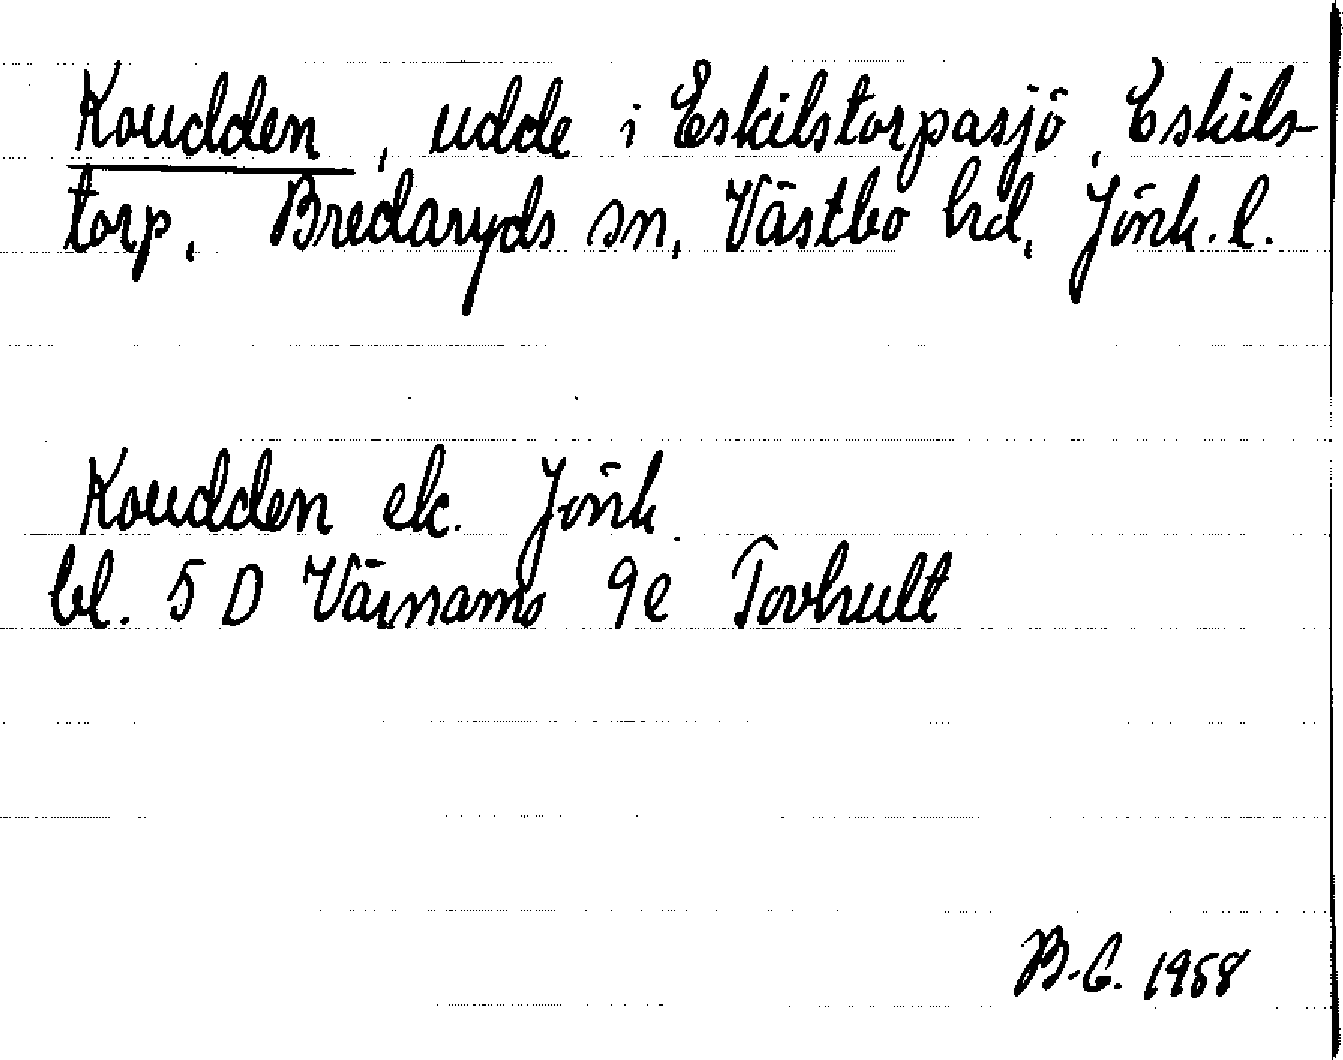 Koudden, udde i Eskilstorpasjö, Eskils-
torp, Bredaryds sn, Västbo hd, Jönk. l.
Koudden ek. Jönk.
bl. 5 D Värnamo 9e Tovhult
B-G. 1968